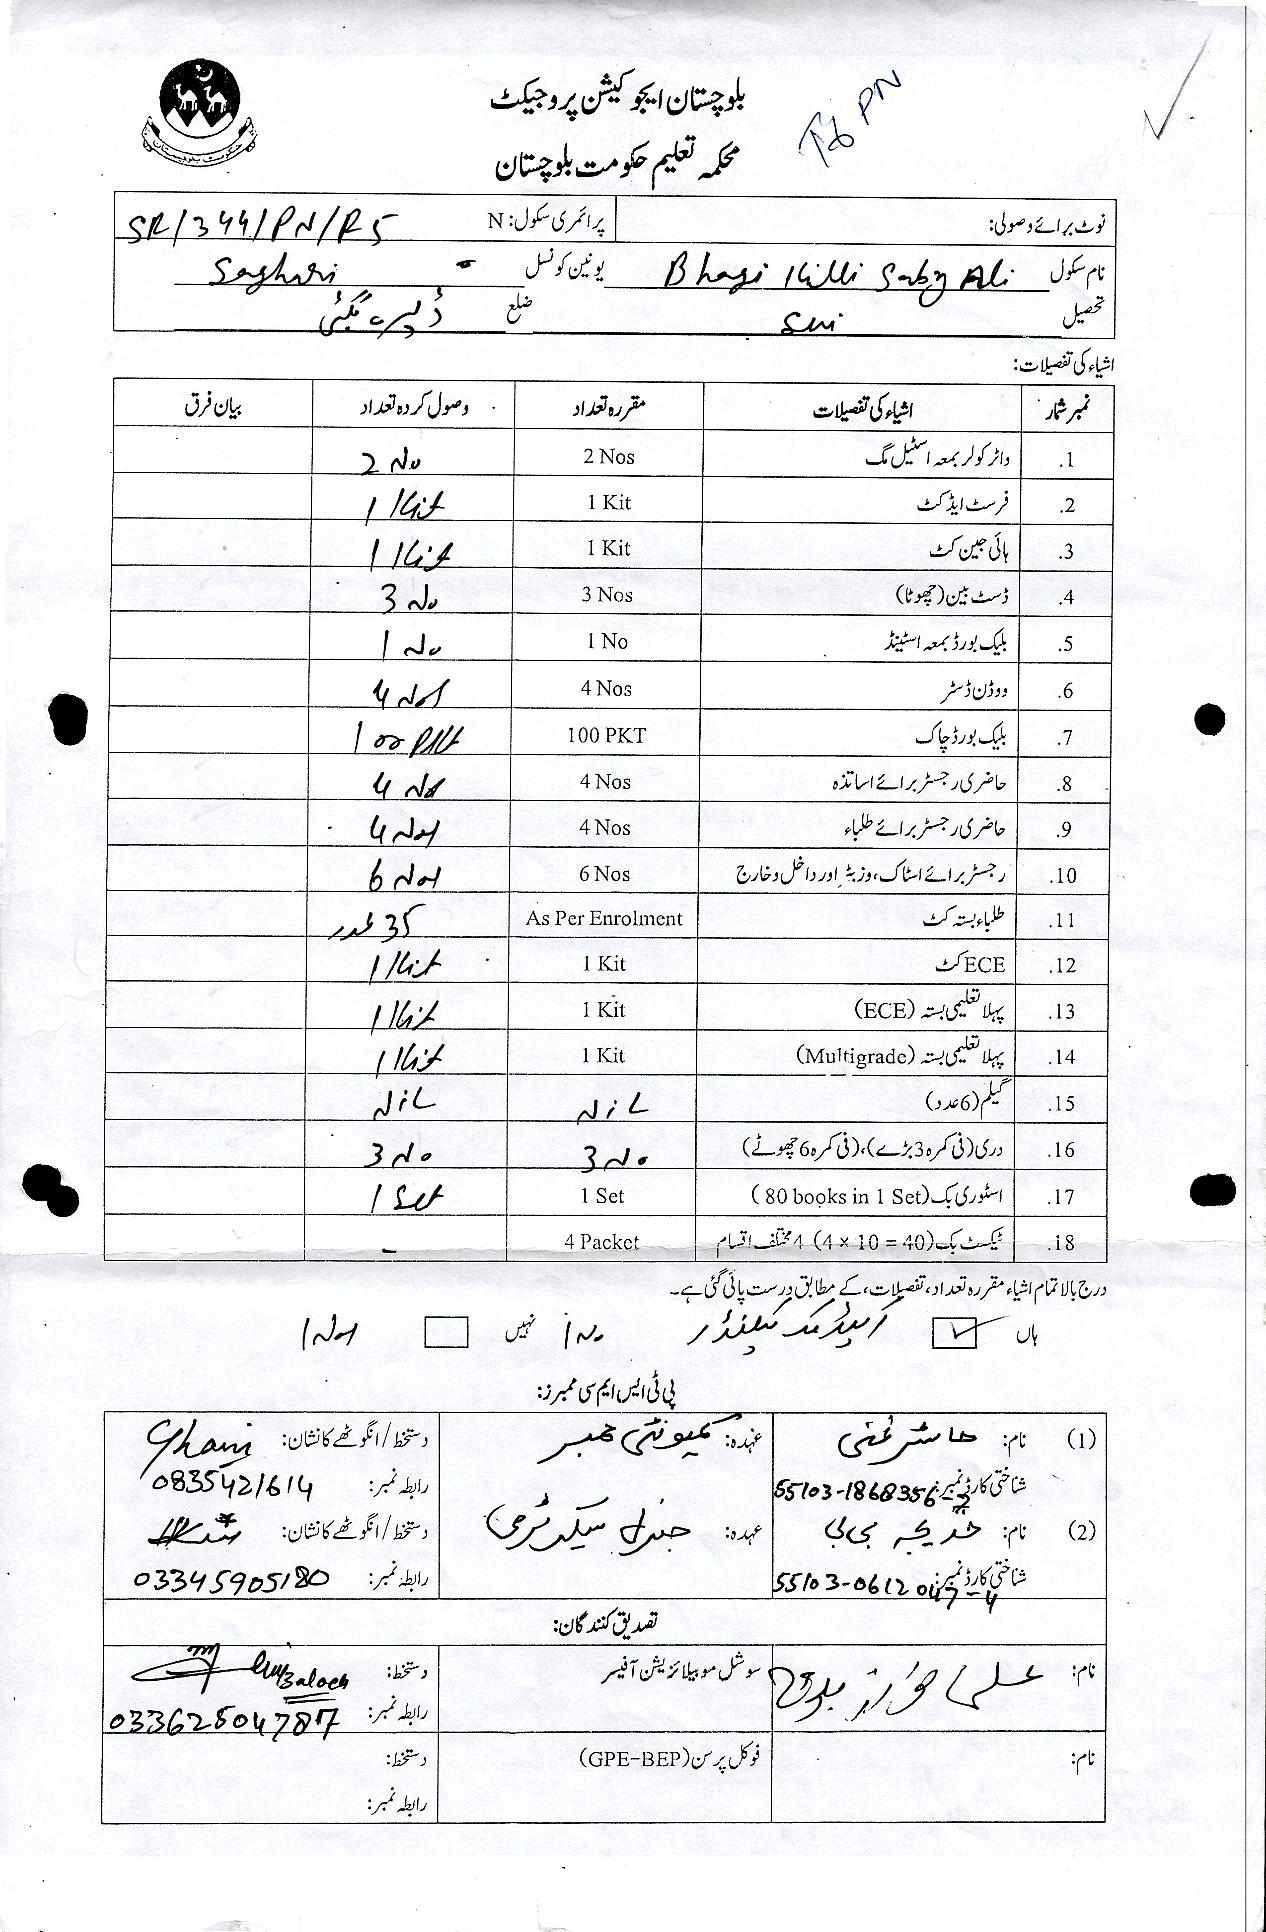 بلوچستان ایجوکیشن پروجیکٹ
محکمہ تعلیم حکومت بلوچستان
حکومت بلوچستان
PN
نوٹ برائے وصولی: پرائمری سکول: N SR/344/PN/R5
نام سکول Bhagi Killi Sabz Ali یونین کونسل Saghari
تحصیل Sui ضلع ڈیرہ بگٹی
اشیاء کی تفصیلات:
نمبر شمار اشیاء کی تفصیلات مقررہ تعداد وصول کردہ تعداد بیان فرق
1. واٹر کولر بمعہ اسٹیل مگ 2 Nos 2 No
2. فرسٹ ایڈ کٹ 1 Kit 1 Kit
3. ہائی جین کٹ 1 Kit 1 Kit
4. ڈسٹ بین (چھوٹا) 3 Nos 3 No
5. بلیک بورڈ بمعہ اسٹینڈ 1 No 1 No
6. ووڈن ڈسٹر 4 Nos 4 Nos
7. بلیک بورڈ چاک 100 PKT 100 PKt
8. حاضری رجسٹر برائے اساتذہ 4 Nos 4 Nos
9. حاضری رجسٹر برائے طلباء 4 Nos 4 Nos
10. رجسٹر برائے اسٹاک، وزیٹر اور داخل و خارج 6 Nos 6 Nos
11. طلباء بستہ کٹ As Per Enrolment 35 عدد
12. ECE کٹ 1 Kit 1 Kit
13. پہلا تعلیمی بستہ (ECE) 1 Kit 1 Kit
14. پہلا تعلیمی بستہ (Multigrade) 1 Kit 1 Kit
15. گیلم (6 عدد) Nil Nil
16. دری (فی کمرہ 3 بڑے)، (فی کمرہ 6 چھوٹے) 3 No 3 No
17. اسٹوری بک (80 books in 1 Set) 1 Set 1 Set
18. ٹیکسٹ بک (4 × 10 = 40) 4 مختلف اقسام 4 Packet -
درج بالا تمام اشیاء مقررہ تعداد، تفصیلات، کے مطابق درست پائی گئی ہے۔
ہاں ✓ کیلنڈر نہیں
پی ٹی ایس ایم سی ممبرز:
(1) نام: ماسٹر غنی عہدہ: کمیونٹی ممبر دستخط/انگوٹھے کا نشان: Ghani
شناختی کارڈ نمبر: 55103-1868356-3 رابطہ نمبر: 0835421614
(2) نام: خدیجہ بی بی عہدہ: جنرل سیکرٹری دستخط/انگوٹھے کا نشان:
شناختی کارڈ نمبر: 55103-0612047-4 رابطہ نمبر: 03345905180
تصدیق کنندگان:
نام: علی نواز بلوچ سوشل موبیلائزیشن آفیسر دستخط: Baloch
رابطہ نمبر:
نام: فوکل پرسن (GPE-BEP) دستخط:
رابطہ نمبر: